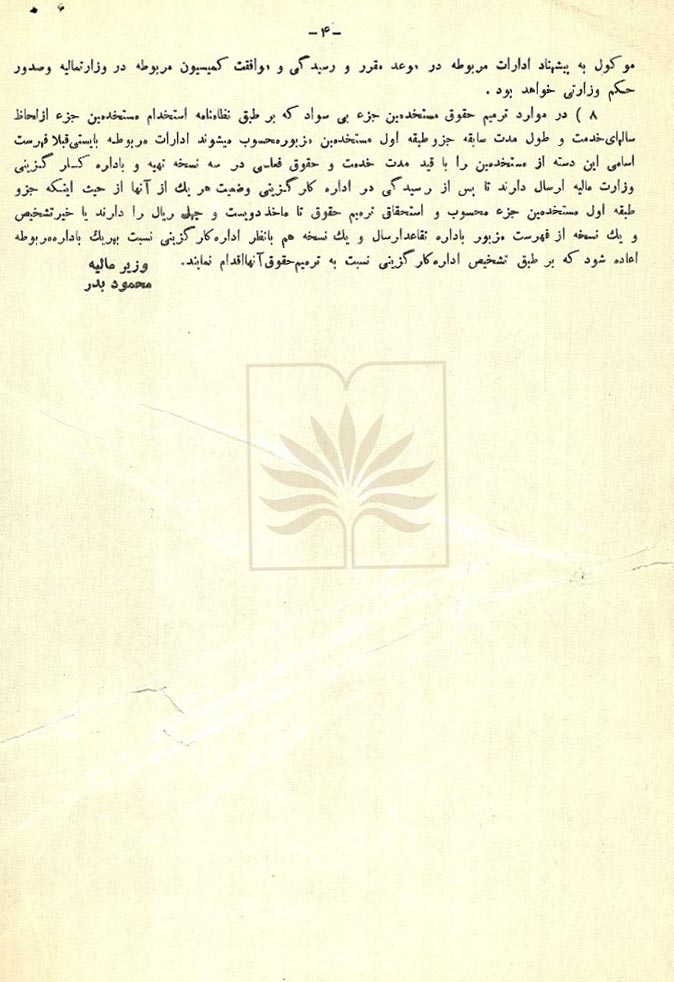 -۴-
موکول به پیشنهاد ادارات مربوطه در موعد مقرر و رسیدگی و موافقت کمیسیون مربوطه در وزارتمالیه وصدور
حکم وزارتی خواهد بود .
۸ ) در موارد ترمیم حقوق مستخدمین جزء بی سواد که بر طبق نظامنامه استخدام مستخدمین جزء ازلحاظ
سالهای خدمت و طول مدت سابقه جزو طبقه اول مستخدمین مزبور محسوب میشوند ادارات مربوطه بایستی قبلا فهرست
اسامی این دسته از مستخدمین را با قید مدت خدمت و حقوق فعلی در سه نسخه تهیه و باداره کارگزینی
وزارت مالیه ارسال دارند تا پس از رسیدگی در اداره کارگزینی وضعیت هر یك از آنها از حیث اینکه جزو
طبقه اول مستخدمین جزء محسوب و استحقاق ترمیم حقوق تا ماخذ دویست و چهل ریال را دارند یا خیر تشخیص
و یك نسخه از فهرست مزبور باداره تقاعد ارسال و یك نسخه هم بانظر اداره کارگزینی نسبت بهریك باداره مربوطه
اعاده شود که بر طبق تشخیص اداره کارگزینی نسبت به ترمیم حقوق آنها اقدام نمایند.
وزیر مالیه
محمود بدر